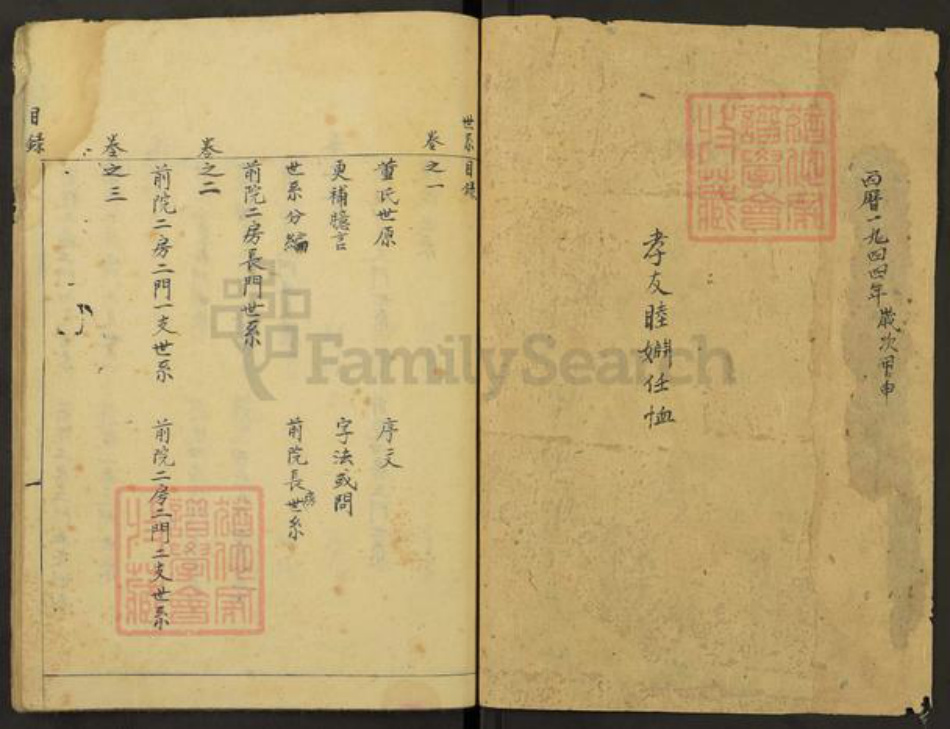 西曆一九四四年 歲次甲申
孝友睦婣任恤
世系目錄
卷之一
董氏世原 序文
更補臆言 字法或問
世系分編 前院長房世系
前院二房長門世系
卷之二
前院二房二門一支世系 前院二房二門二支世系
卷之三
目錄
一
FamilySearch